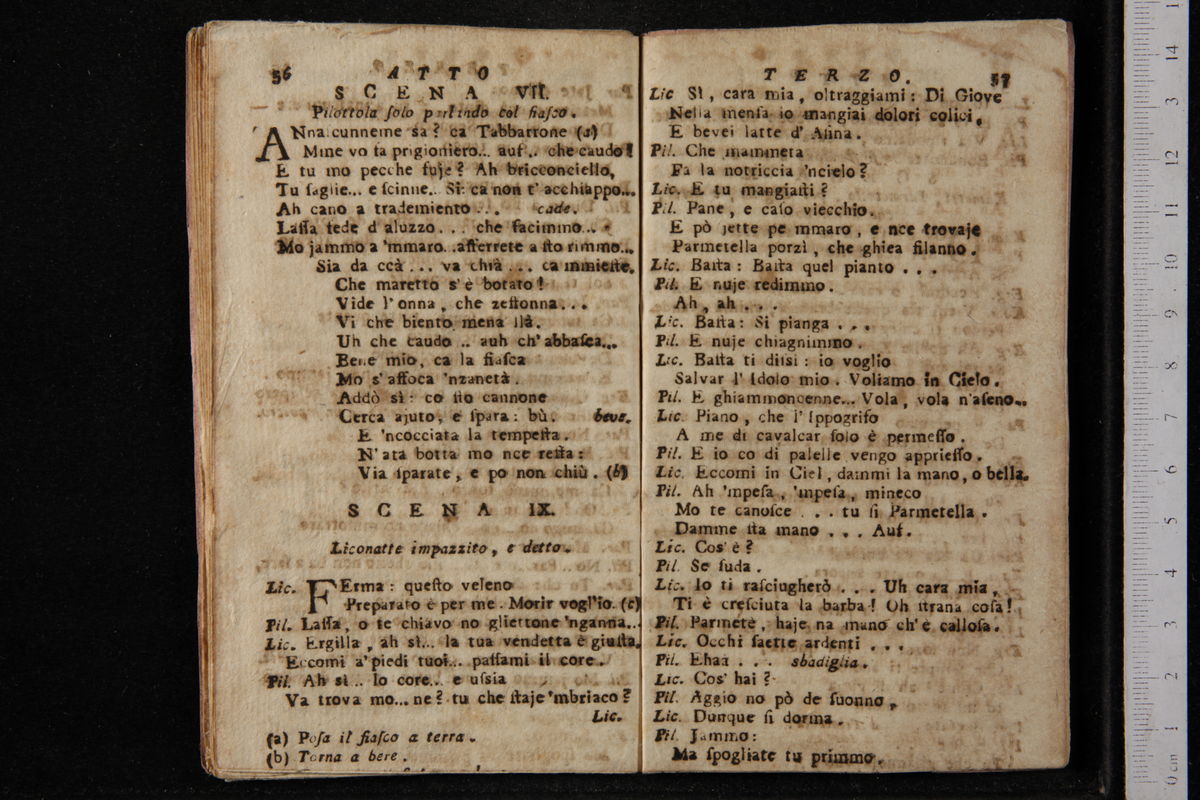 56
ATTO
SCENA VII.
Pilottola solo parlando col fiasco.
ANna: cunneme sa? ca Tabbarrone (a)
Mme vo fa prigioniero... auf.. che caudo!
E tu mo pecche fuje? Ah bricconciello,
Tu saglie... e scinne.. Si: ca non t' acchiappo...
Ah cano a trademiento... cade.
Lassa fede d aluzzo... che facimmo...
Mo jammo a 'mmaro..afferrete a sto rimmo...
Sia da ccà... va chià... ca mmieste.
Che maretto s' è botato!
Vide l' onna, che zeffonna...
Vi che biento mena llà.
Uh che caudo.. auh ch' abbasca...
Bene mio, ca la fiasca
Mo s' affoca 'nzanetà.
Addò sì: co sto cannone
Cerca ajuto, e spara: bù. beve.
E 'ncocciata la tempesta.
N' ata botta mo nce resta:
Via sparate, e po non chiù. (b)
SCENA IX.
Liconatte impazzito, e detto.
Lic. FErma: questo veleno
Preparato è per me. Morir vogl'io. (c)
Pil. Lassa, o te chiavo no gliettone 'nganna...
Lic. Ergilla, ah sì... la tua vendetta è giusta.
Eccomi a' piedi tuoi... passami il core.
Pil. Ah sì.. lo core... e ussia
Va trova mo... ne? tu che staje 'mbriaco?
Lic.
(a) Posa il fiasco a terra.
(b) Torna a bere.
TERZO.
57
Lic Sì, cara mia, oltraggiami: Di Giove
Nella mensa io mangiai dolori colici,
E bevei latte d' Asina.
Pil. Che mammeta
Fa la notriccia 'ncielo?
Lic. E tu mangiasti?
Pil. Pane, e caso viecchio.
E pò jette pe mmaro, e nce trovaje
Parmetella porzì, che ghiea filanno.
Lic. Basta: Basta quel pianto...
Pil. E nuje redimmo.
Ah, ah...
Lic. Basta: Si pianga...
Pil. E nuje chiagnimmo.
Lic. Basta ti dissi: io voglio
Salvar l' Idolo mio. Voliamo in Cielo.
Pil. E ghiammoncenne... Vola, vola n'aseno..
Lic. Piano, che l' Ippogrifo
A me di cavalcar solo è permesso.
Pil. E io co di palelle vengo appriesso.
Lic. Eccomi in Ciel, dammi la mano, o bella.
Pil. Ah 'mpesa, 'mpesa, mineco
Mo te canosce... tu si Parmetella.
Damme sta mano... Auf.
Lic. Cos' è?
Pil. Se suda.
Lic. Io ti rasciugherò... Uh cara mia,
Ti è cresciuta la barba! Oh strana cosa!
Pil. Parmetè, haje na mano ch' è callosa.
Lic. Occhi saette ardenti...
Pil. Ehaa... sbadiglia.
Lic. Cos' hai?
Pil. Aggio no pò de suonno,
Lic. Dunque si dorma.
Pil. Jammo:
Ma spogliate tu primmo.